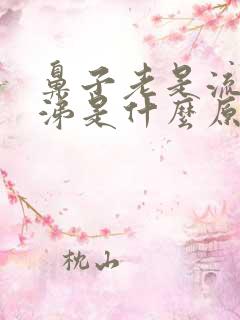 鼻子老是流
涕是什麼原
枕山